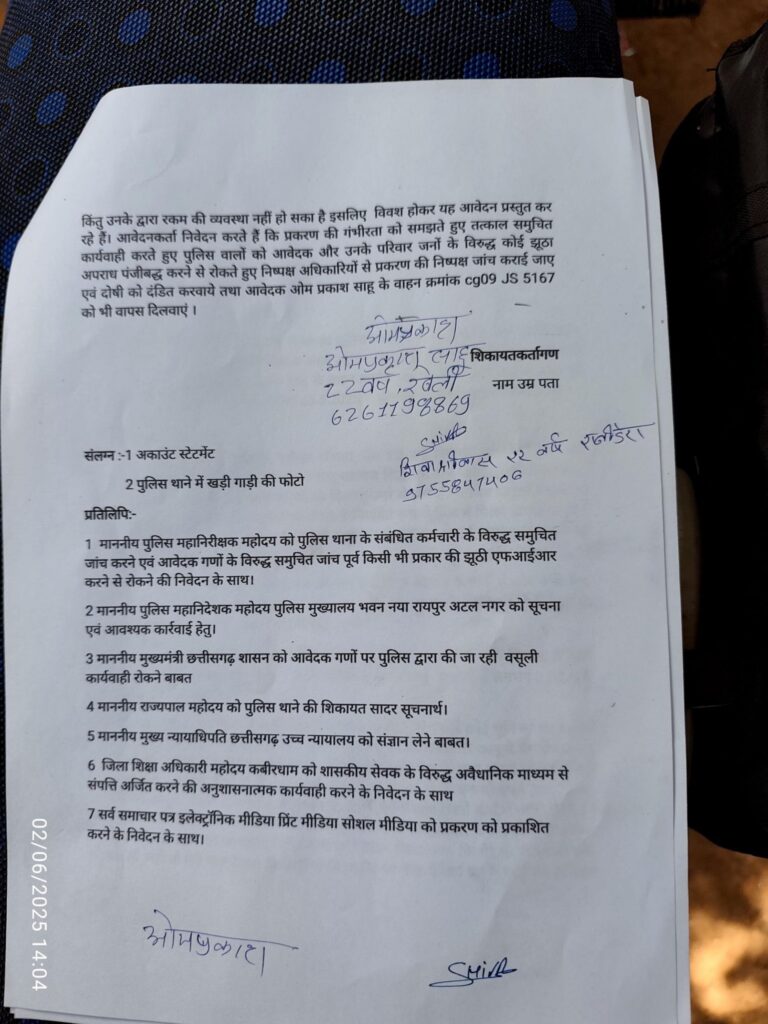 किंतु उनके द्वारा रकम की व्यवस्था नहीं हो सका है इसलिए विवश होकर यह आवेदन प्रस्तुत कर
रहे हैं। आवेदनकर्ता निवेदन करते हैं कि प्रकरण की गंभीरता को समझते हुए तत्काल समुचित
कार्यवाही करते हुए पुलिस वालों को आवेदक और उनके परिवार जनों के विरुद्ध कोई झूठा
अपराध पंजीबद्ध करने से रोकते हुए निष्पक्ष अधिकारियों से प्रकरण की निष्पक्ष जांच कराई जाए
एवं दोषी को दंडित करवाये तथा आवेदक ओम प्रकाश साहू के वाहन क्रमांक cg09 JS 5167
को भी वापस दिलवाएं ।
ओमप्रकाश
ओमप्रकाश साहू शिकायतकर्तागण
22 वर्ष, नाम उम्र पता
6261198869
SHIVA
संलग्न :-1 अकाउंट स्टेटमेंट
शिवा वर्ष
2 पुलिस थाने में खड़ी गाड़ी की फोटो
9755847406
प्रतिलिपि:-
1 माननीय पुलिस महानिरीक्षक महोदय को पुलिस थाना के संबंधित कर्मचारी के विरुद्ध समुचित
जांच करने एवं आवेदक गणों के विरुद्ध समुचित जांच पूर्व किसी भी प्रकार की झूठी एफआईआर
करने से रोकने की निवेदन के साथ।
2 माननीय पुलिस महानिदेशक महोदय पुलिस मुख्यालय भवन नया रायपुर अटल नगर को सूचना
एवं आवश्यक कार्रवाई हेतु।
3 माननीय मुख्यमंत्री छत्तीसगढ़ शासन को आवेदक गणों पर पुलिस द्वारा की जा रही वसूली
कार्यवाही रोकने बाबत
4 माननीय राज्यपाल महोदय को पुलिस थाने की शिकायत सादर सूचनार्थ।
5 माननीय मुख्य न्यायाधिपति छत्तीसगढ़ उच्च न्यायालय को संज्ञान लेने बाबत।
6 जिला शिक्षा अधिकारी महोदय कबीरधाम को शासकीय सेवक के विरुद्ध अवैधानिक माध्यम से
संपत्ति अर्जित करने की अनुशासनात्मक कार्यवाही करने के निवेदन के साथ
7 सर्व समाचार पत्र इलेक्ट्रॉनिक मीडिया प्रिंट मीडिया सोशल मीडिया को प्रकरण को प्रकाशित
करने के निवेदन के साथ।
ओमप्रकाश
SHIVA
02/06/2025 14:04